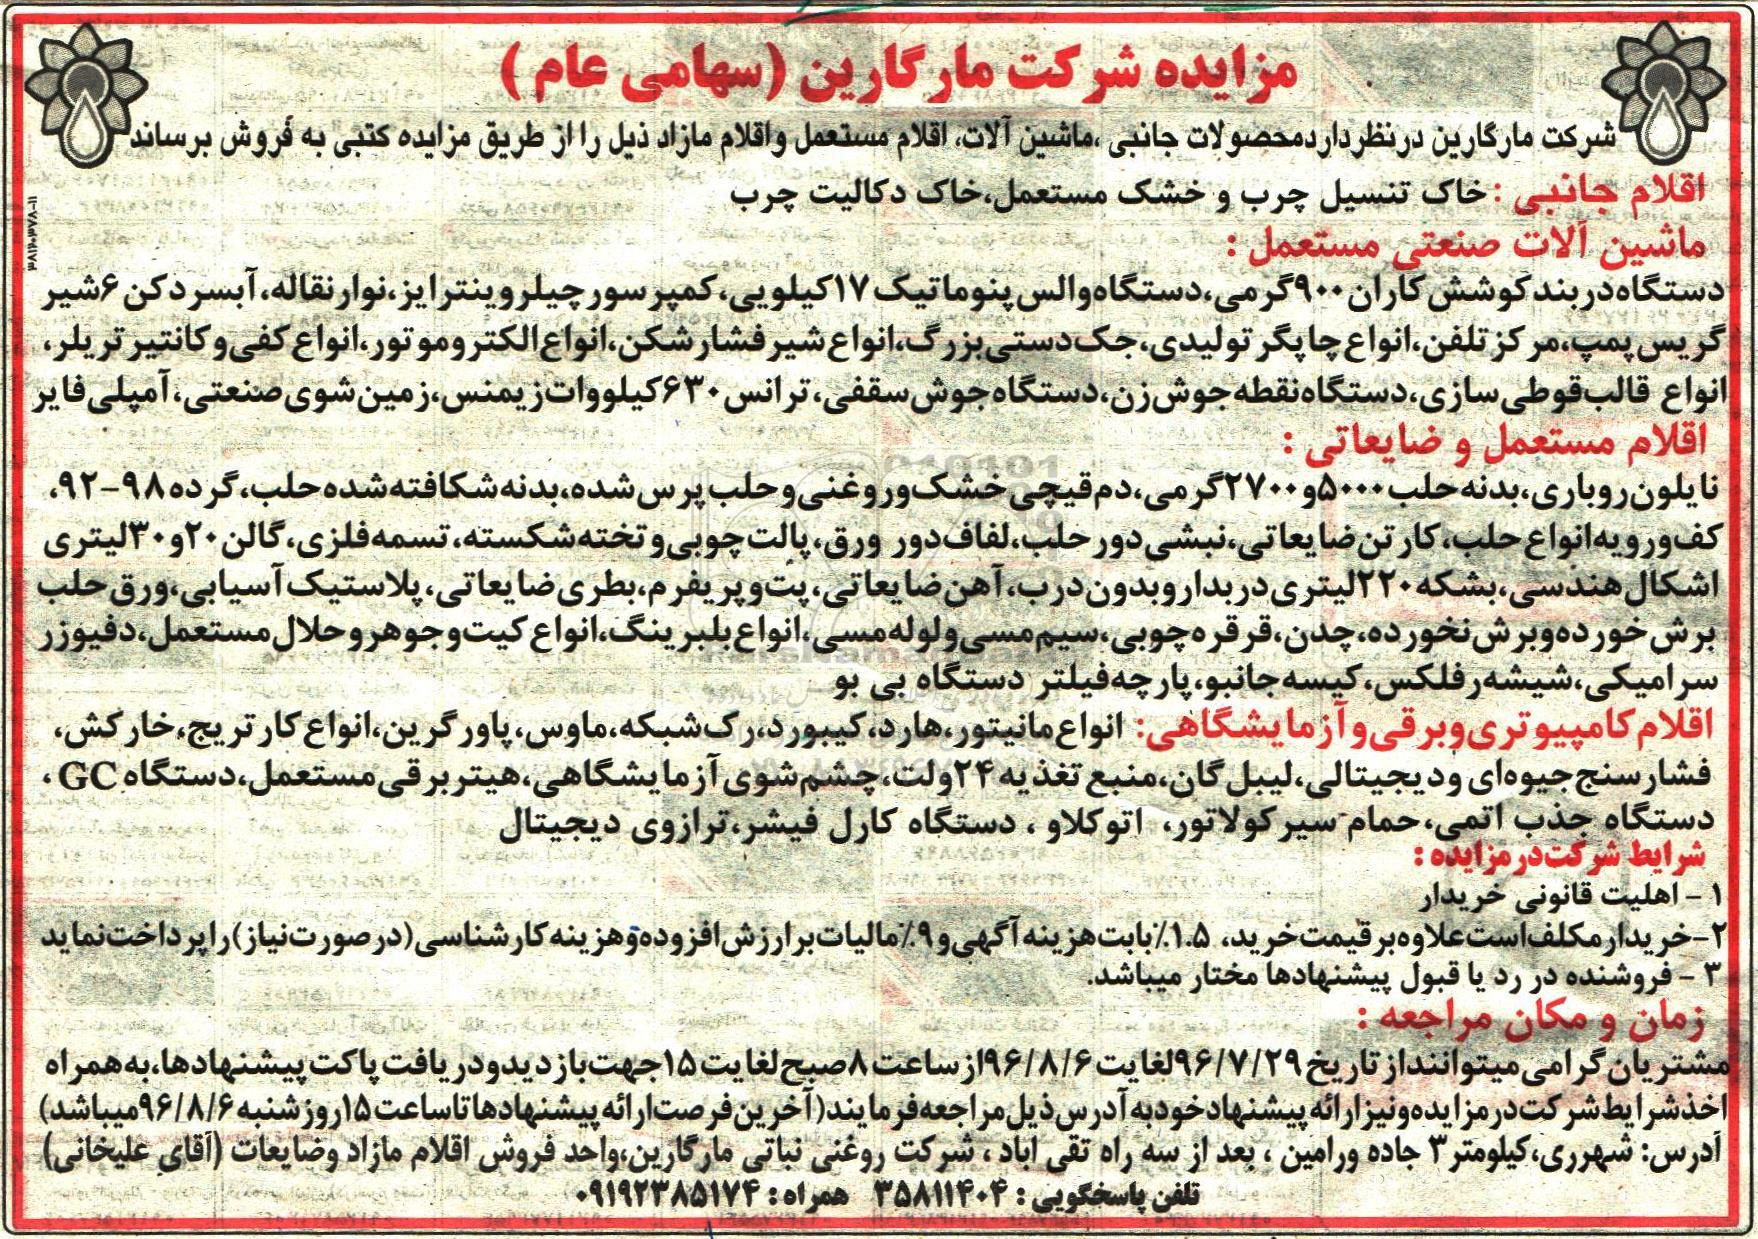 مزایده شرکت مارگارین (سهامی عام)
شرکت مارگارین درنظرداردمحصولات جانبی ،ماشین آلات، اقلام مستعمل واقلام مازاد ذیل را از طریق مزایده کتبی به فروش برساند
اقلام جانبی : خاک تنسیل چرب و خشک مستعمل،خاک دکالیت چرب
ماشین آلات صنعتی مستعمل :
دستگاه دربند کوشش کاران ۹۰۰گرمی، دستگاه والس پنوماتیک ۱۷کیلویی، کمپرسور چیلر وینترایز،نوار نقاله، آبسردکن ۶شیر
گریس پمپ،مرکز تلفن،انواع چاپگر تولیدی،جک دستی بزرگ،انواع شیر فشارشکن،انواع الکتروموتور،انواع کفی و کانتیر تریلر،
انواع قالب قوطی سازی، دستگاه نقطه جوش زن، دستگاه جوش سقفی، ترانس ۶۳۰کیلووات زیمنس، زمین شوی صنعتی، آمپلی فایر
اقلام مستعمل و ضایعاتی :
نایلون روباری،بدنه حلب ۵۰۰۰و۲۷۰۰گرمی،دم قیچی خشک وروغنی و حلب پرس شده،بدنه شکافته شده حلب،گرده ۹۸-۹۲،
کف ورویه انواع حلب،کارتن ضایعاتی،نبشی دور حلب،لفاف دور ورق،پالت چوبی و تخته شکسته، تسمه فلزی، گالن ۲۰و۳۰لیتری
اشکال هندسی،بشکه ۲۲۰لیتری دربدار وبدون درب، آهن ضایعاتی، پت و پریفرم،بطری ضایعاتی،پلاستیک آسیابی،ورق حلب
برش خورده وبرش نخورده،چدن،قرقره چوبی،سیم مسی و لوله مسی،انواع بلبرینگ،انواع کیت و جوهر و حلال مستعمل،دفیوزر
سرامیکی،شیشه رفلکس،کیسه جانبو،پارچه فیلتر دستگاه بی بو
اقلام کامپیوتری وبرقی و آزمایشگاهی: انواع مانیتور،هارد،کیبورد،رک شبکه،ماوس،پاور گرین،انواع کارتریج،خارکش،
فشارسنج جیوه ای ودیجیتالی،لیبل گان،منبع تغذیه ۲۴ولت،چشم شوی آزمایشگاهی،هیتر برقی مستعمل،دستگاه GC ،
دستگاه جذب اتمی،حمام سیرکولاتور، اتوکلاو ، دستگاه کارل فیشر،ترازوی دیجیتال
شرایط شرکت در مزایده :
۱ - اهلیت قانونی خریدار
۲-خریدار مکلف است علاوه بر قیمت خرید، ۱.۵٪ بابت هزینه آگهی و ۹٪ مالیات بر ارزش افزوده و هزینه کارشناسی (در صورت نیاز) را پرداخت نماید
۳ - فروشنده در رد یا قبول پیشنهادها مختار میباشد.
زمان و مکان مراجعه :
مشتریان گرامی میتوانند از تاریخ ۹۶/۷/۲۹لغایت ۹۶/۸/۶از ساعت ۸صبح لغایت ۱۵جهت بازدید و دریافت پاکت پیشنهادها، به همراه
اخذ شرایط شرکت در مزایده و نیز ارائه پیشنهاد خود به آدرس ذیل مراجعه فرمایند (آخرین فرصت ارائه پیشنهادها تا ساعت ۱۵روز شنبه ۹۶/۸/۶میباشد)
آدرس: شهرری،کیلومتر ۳ جاده ورامین ، بعد از سه راه تقی اباد ، شرکت روغنی نباتی مارگارین،واحد فروش اقلام مازاد وضایعات (آقای علیخانی)
تلفن پاسخگویی : ۳۵۸۱۱۴۰۴ همراه : ۰۹۱۹۲۳۸۵۱۷۴